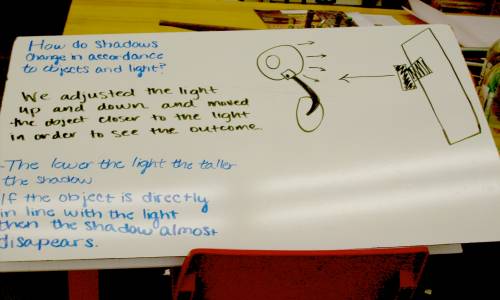 How do shadows
change in accordance
to objects and light?
We adjusted the light
up and down and moved
the object closer to the light
in order to see the outcome.
- The lower the light the taller
the shadow
If the object is directly
in line with the light
then the shadow almost
disapears.